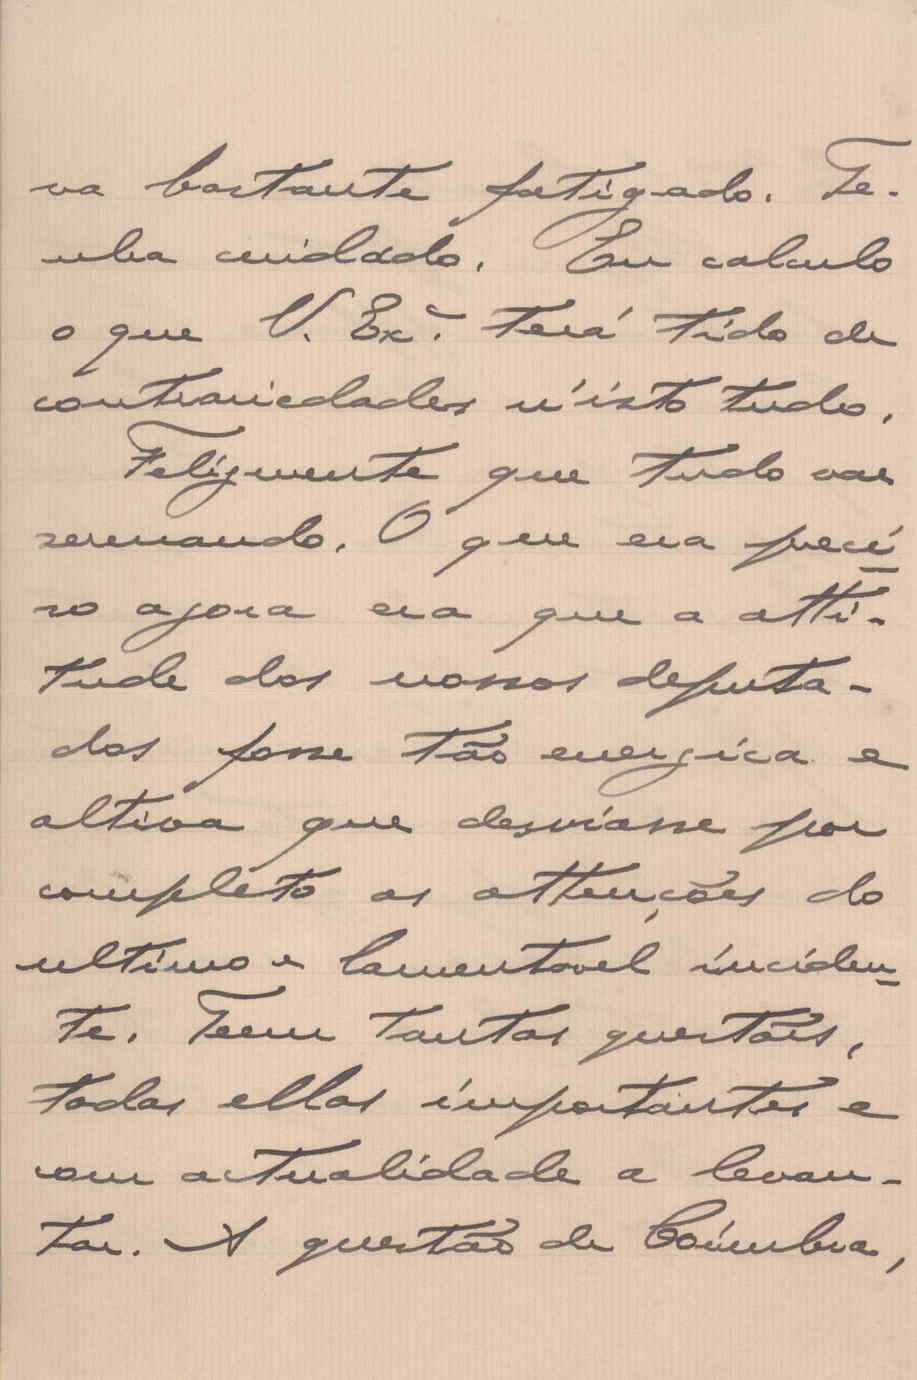 va bastante fatigado. Te-
nha cuidádo. Eu calculo
o que V. Exª. terá tido de
contrariedades n'isto tudo.
Felizmente que tudo vae
serenando. O que era preci-
so agora era que a atti-
tude dos nossos deputa-
dos fosse tão energica e
altiva que desviasse por
completo as attenções do
ultimo e lamentavel inciden-
te. Teem tantas questões,
todas ellas importantes e
com actualidade a levan-
tar. A questão de Coimbra,